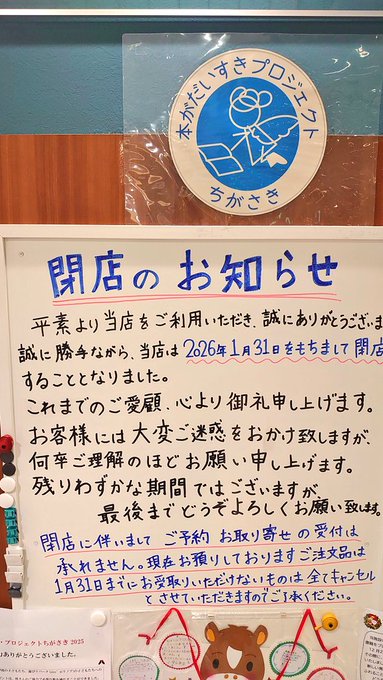 本がだいすきプロジェクト
ちがさき
閉店のお知らせ
平素より当店をご利用いただき、誠にありがとうございま
誠に勝手ながら、当店は2026年1月31日をもちまして閉店
することとなりました。
これまでのご愛顧、心より御礼申し上げます。
お客様には大変ご迷惑をおかけ致しますが、
何卒ご理解のほどお願い申し上げます。
残りわずかな期間ではございますが、
最後までどうぞよろしくお願い致します。
閉店に伴いまして ご予約 お取り寄せの受付は
承れません。現在お預りしておりますご注文品は
1月31日までにお受取りいただけないものは全てキャンセル
とさせていただきますのでご了承ください。
・プロジェクトちがさき2025
ありがとうございました。